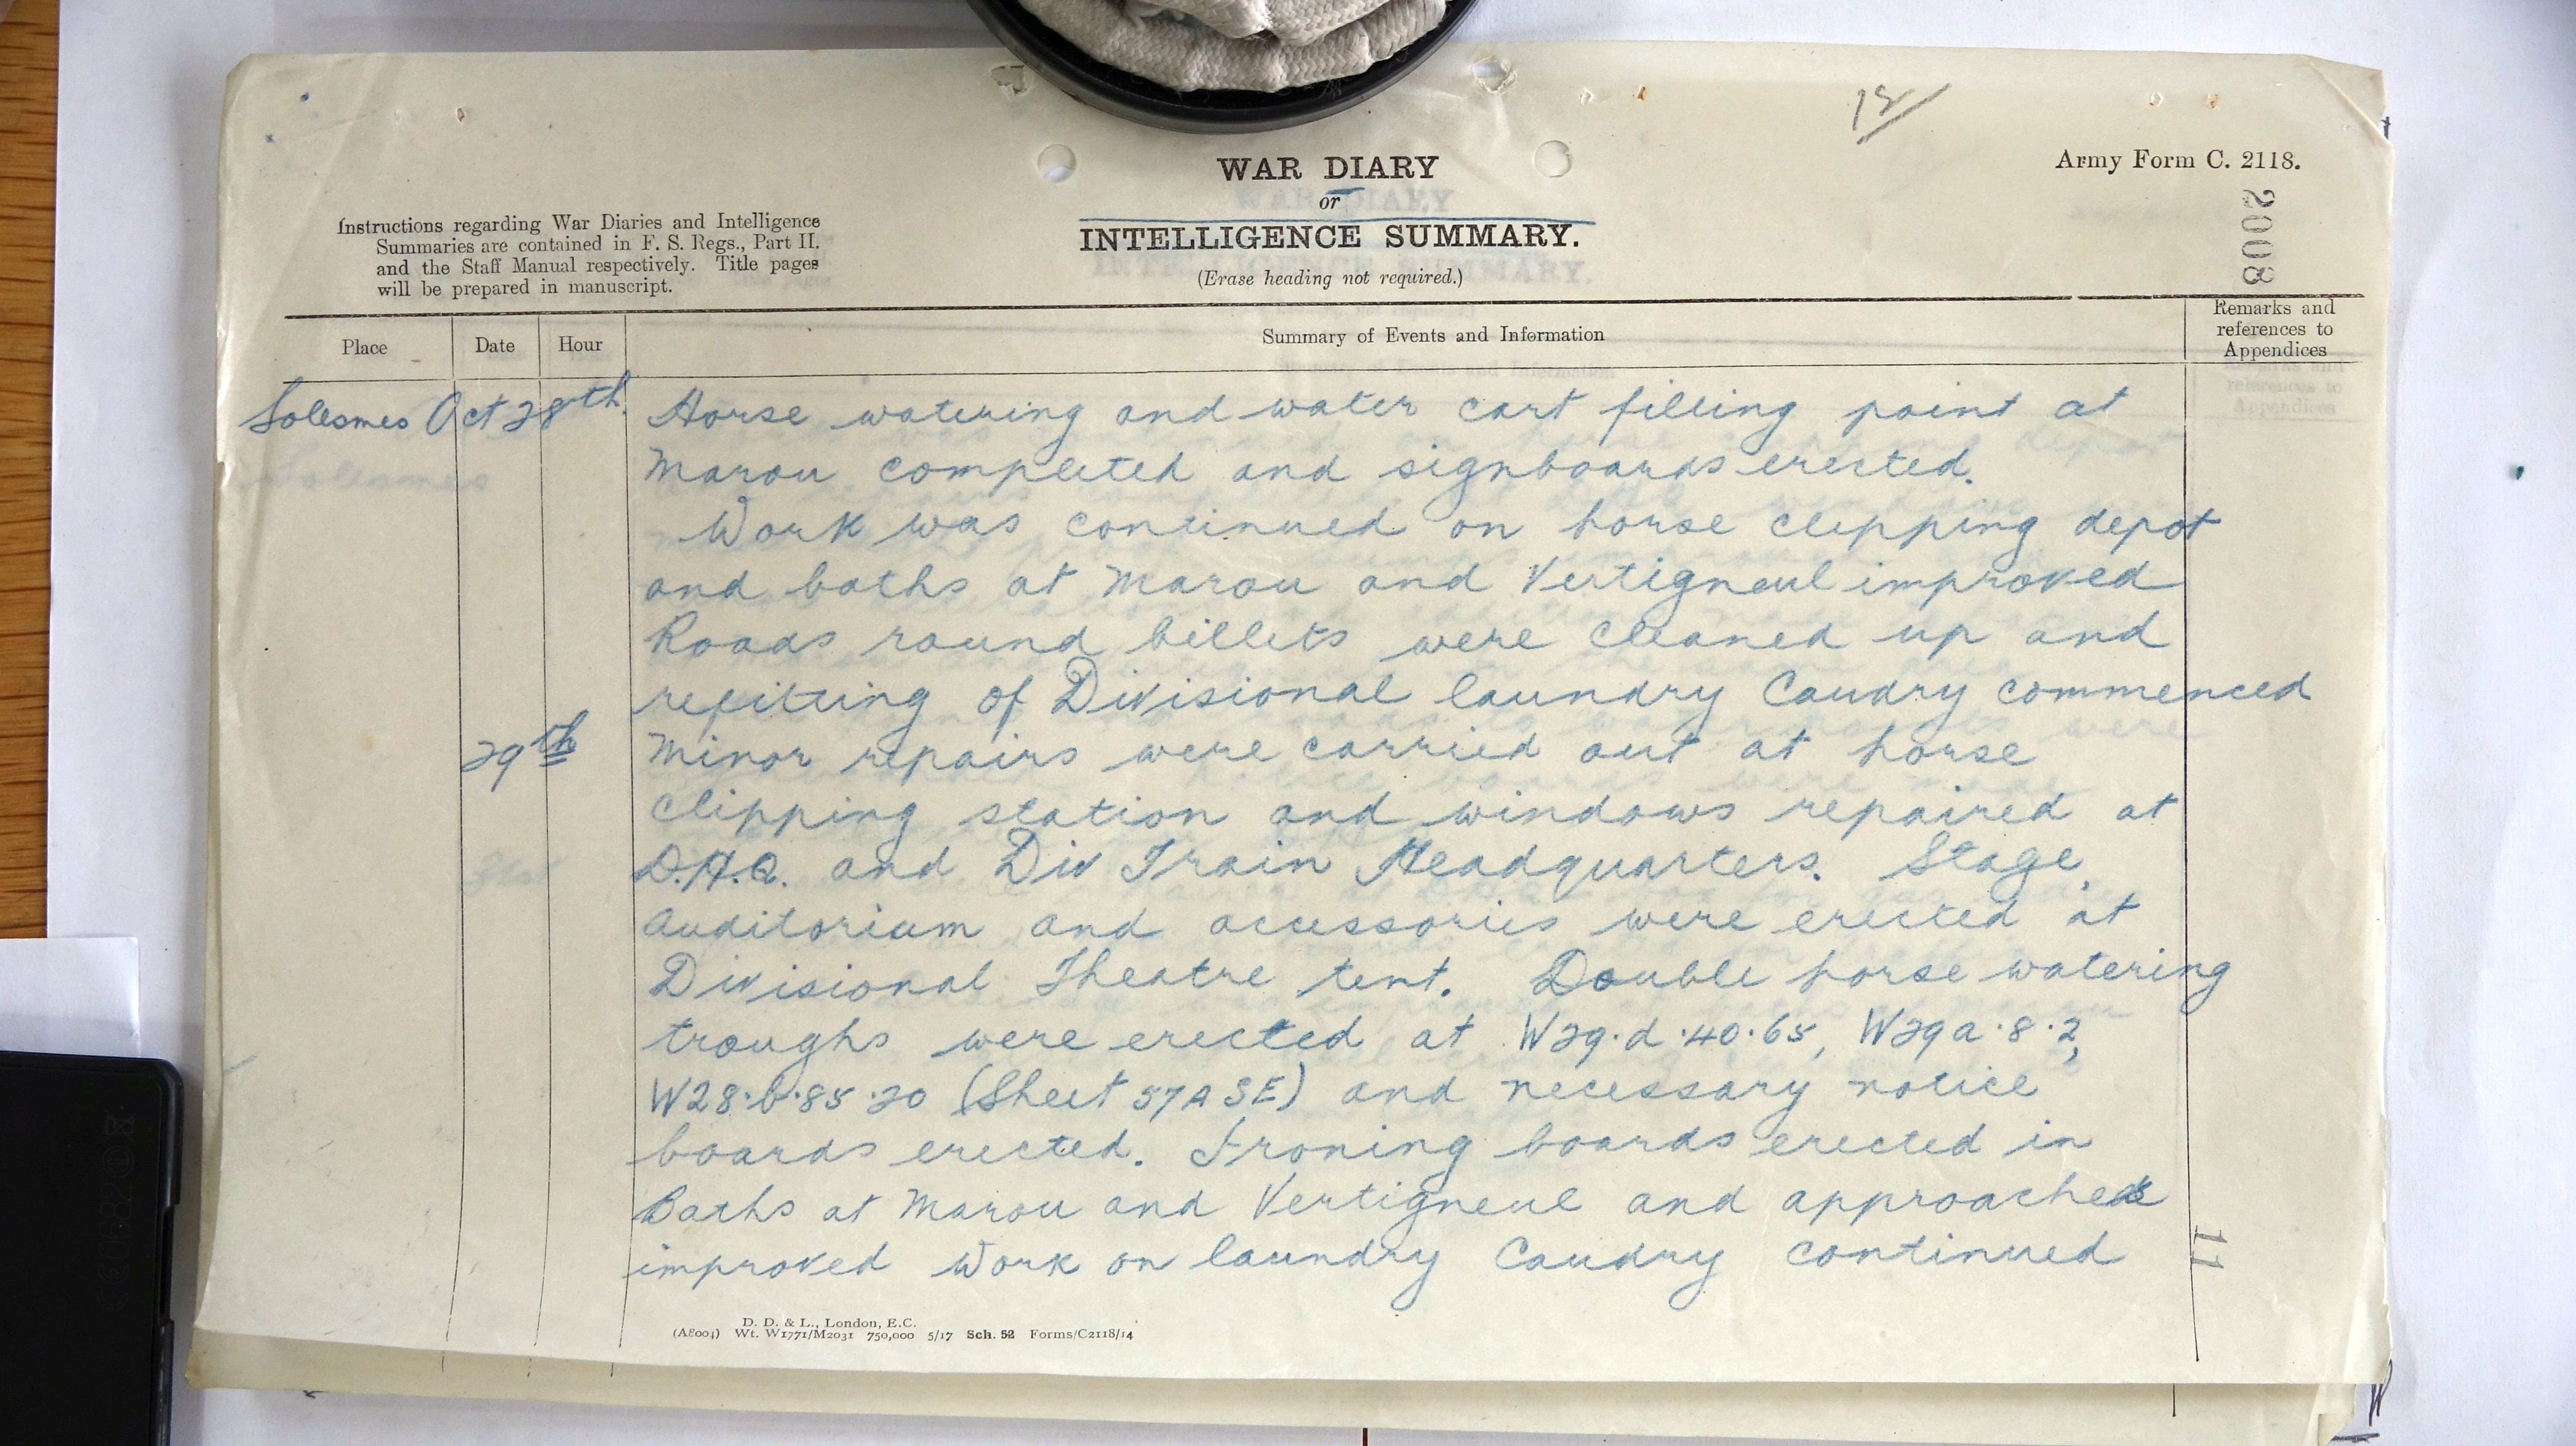 12
WAR DIARY
or
INTELLIGENCE SUMMARY.
(Erase heading not required.)
Army Form C. 2118.
2008
Instructions regarding War Diaries and Intelligence
Summaries are contained in F. S. Regs., Part II.
and the Staff Manual respectively. Title pages
will be prepared in manuscript.
Place
Date
Hour
Summary of Events and Information
Remarks and
references to
Appendices
Solesmes Oct 28th Horse watering and water cart filling point at
Marou completed and signboards erected.
Work was continued on horse clipping depot
and baths at Marou and Vertigneul improved
Roads round billets were cleaned up and
refitting of Divisional laundry Caudry commenced
29th Minor repairs were carried out at horse
clipping station and windows repaired at
D.H.Q. and Div Train Headquarters. Stage,
auditorium and accessories were erected at
Divisional Theatre tent. Double horse watering
troughs were erected at W29.d.40.65, W29a.8.2,
W28.b.85.20 (Sheet 57A SE) and necessary notice
boards erected. Ironing boards erected in
Baths at Marou and Vertigneul and approaches
improved Work on laundry Caudry continued
11
D. D. & L., London, E.C.
(A8004) Wt. W1771/M2031 750,000 5/17 Sch. 52 Forms/C2118/14